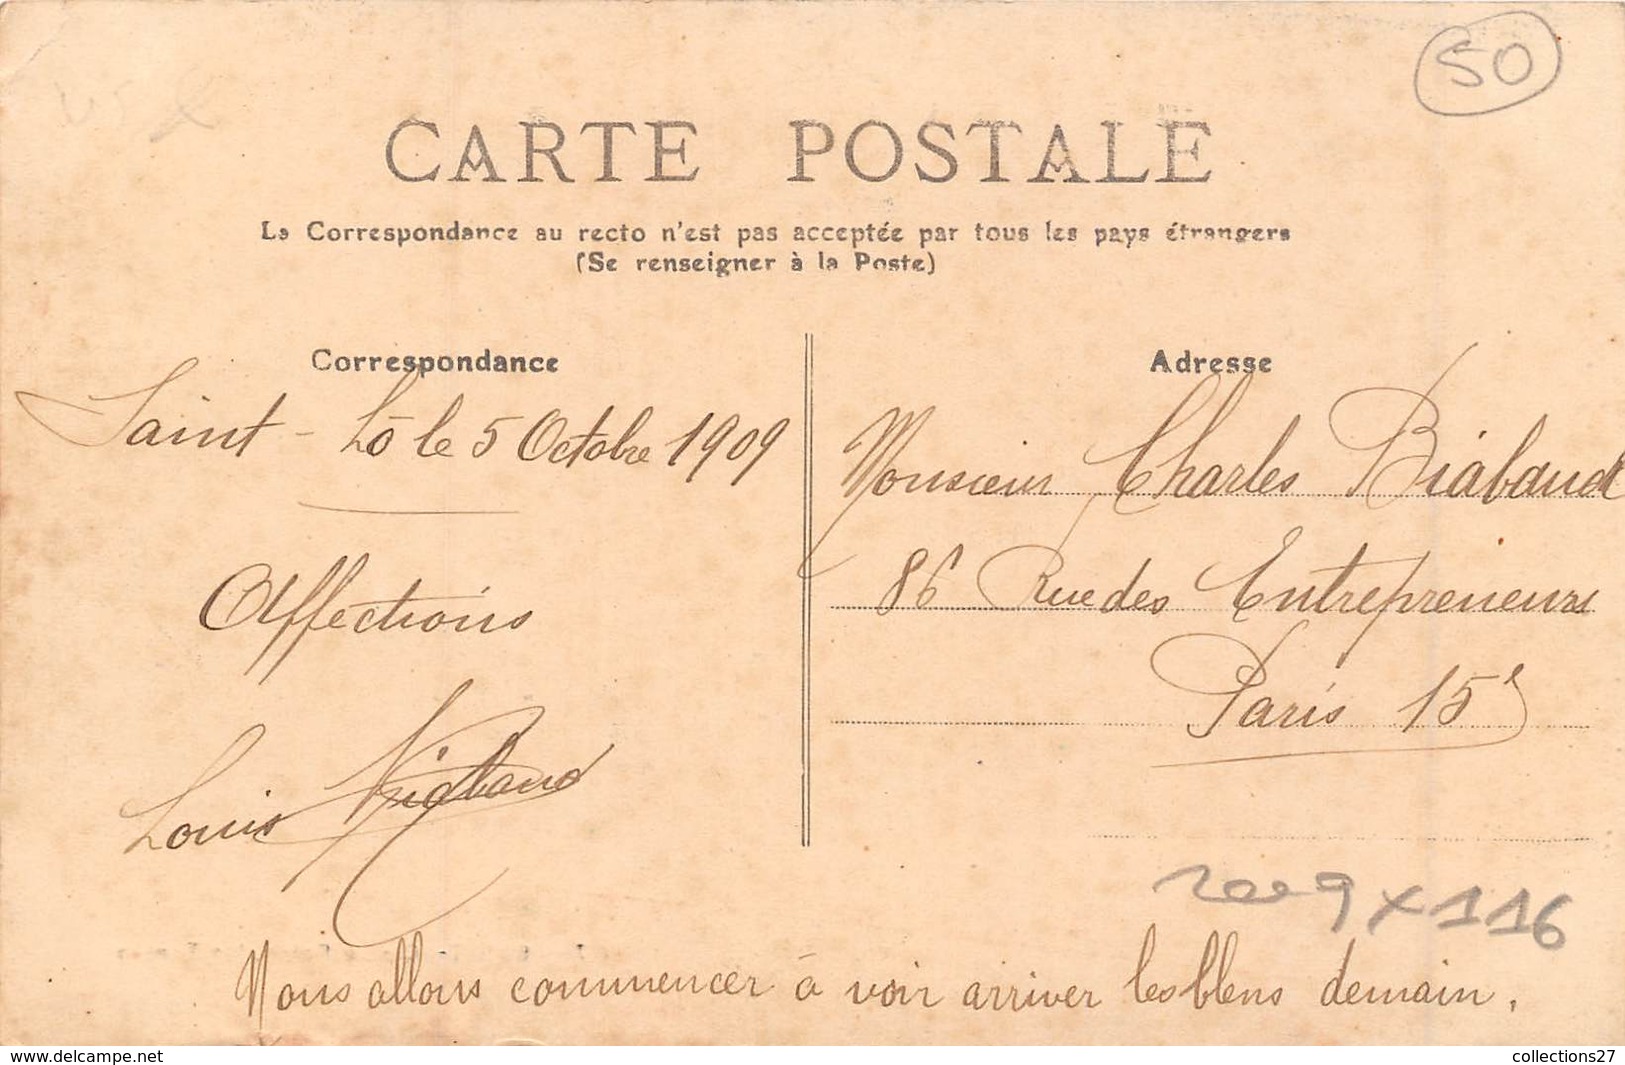 50
CARTE POSTALE
La Correspondance au recto n'est pas acceptée par tous les pays étrangers
(Se renseigner à la Poste)
Correspondance
Saint-Lô le 5 Octobre 1909
Affections
Louis
Nous allons commencer à voir arriver les blens demain.
Adresse
Monsieur Charles Biabaud
86 Rue des Entrepreneurs
Paris 15e
2009 x 116
www.delcampe.net
collections27